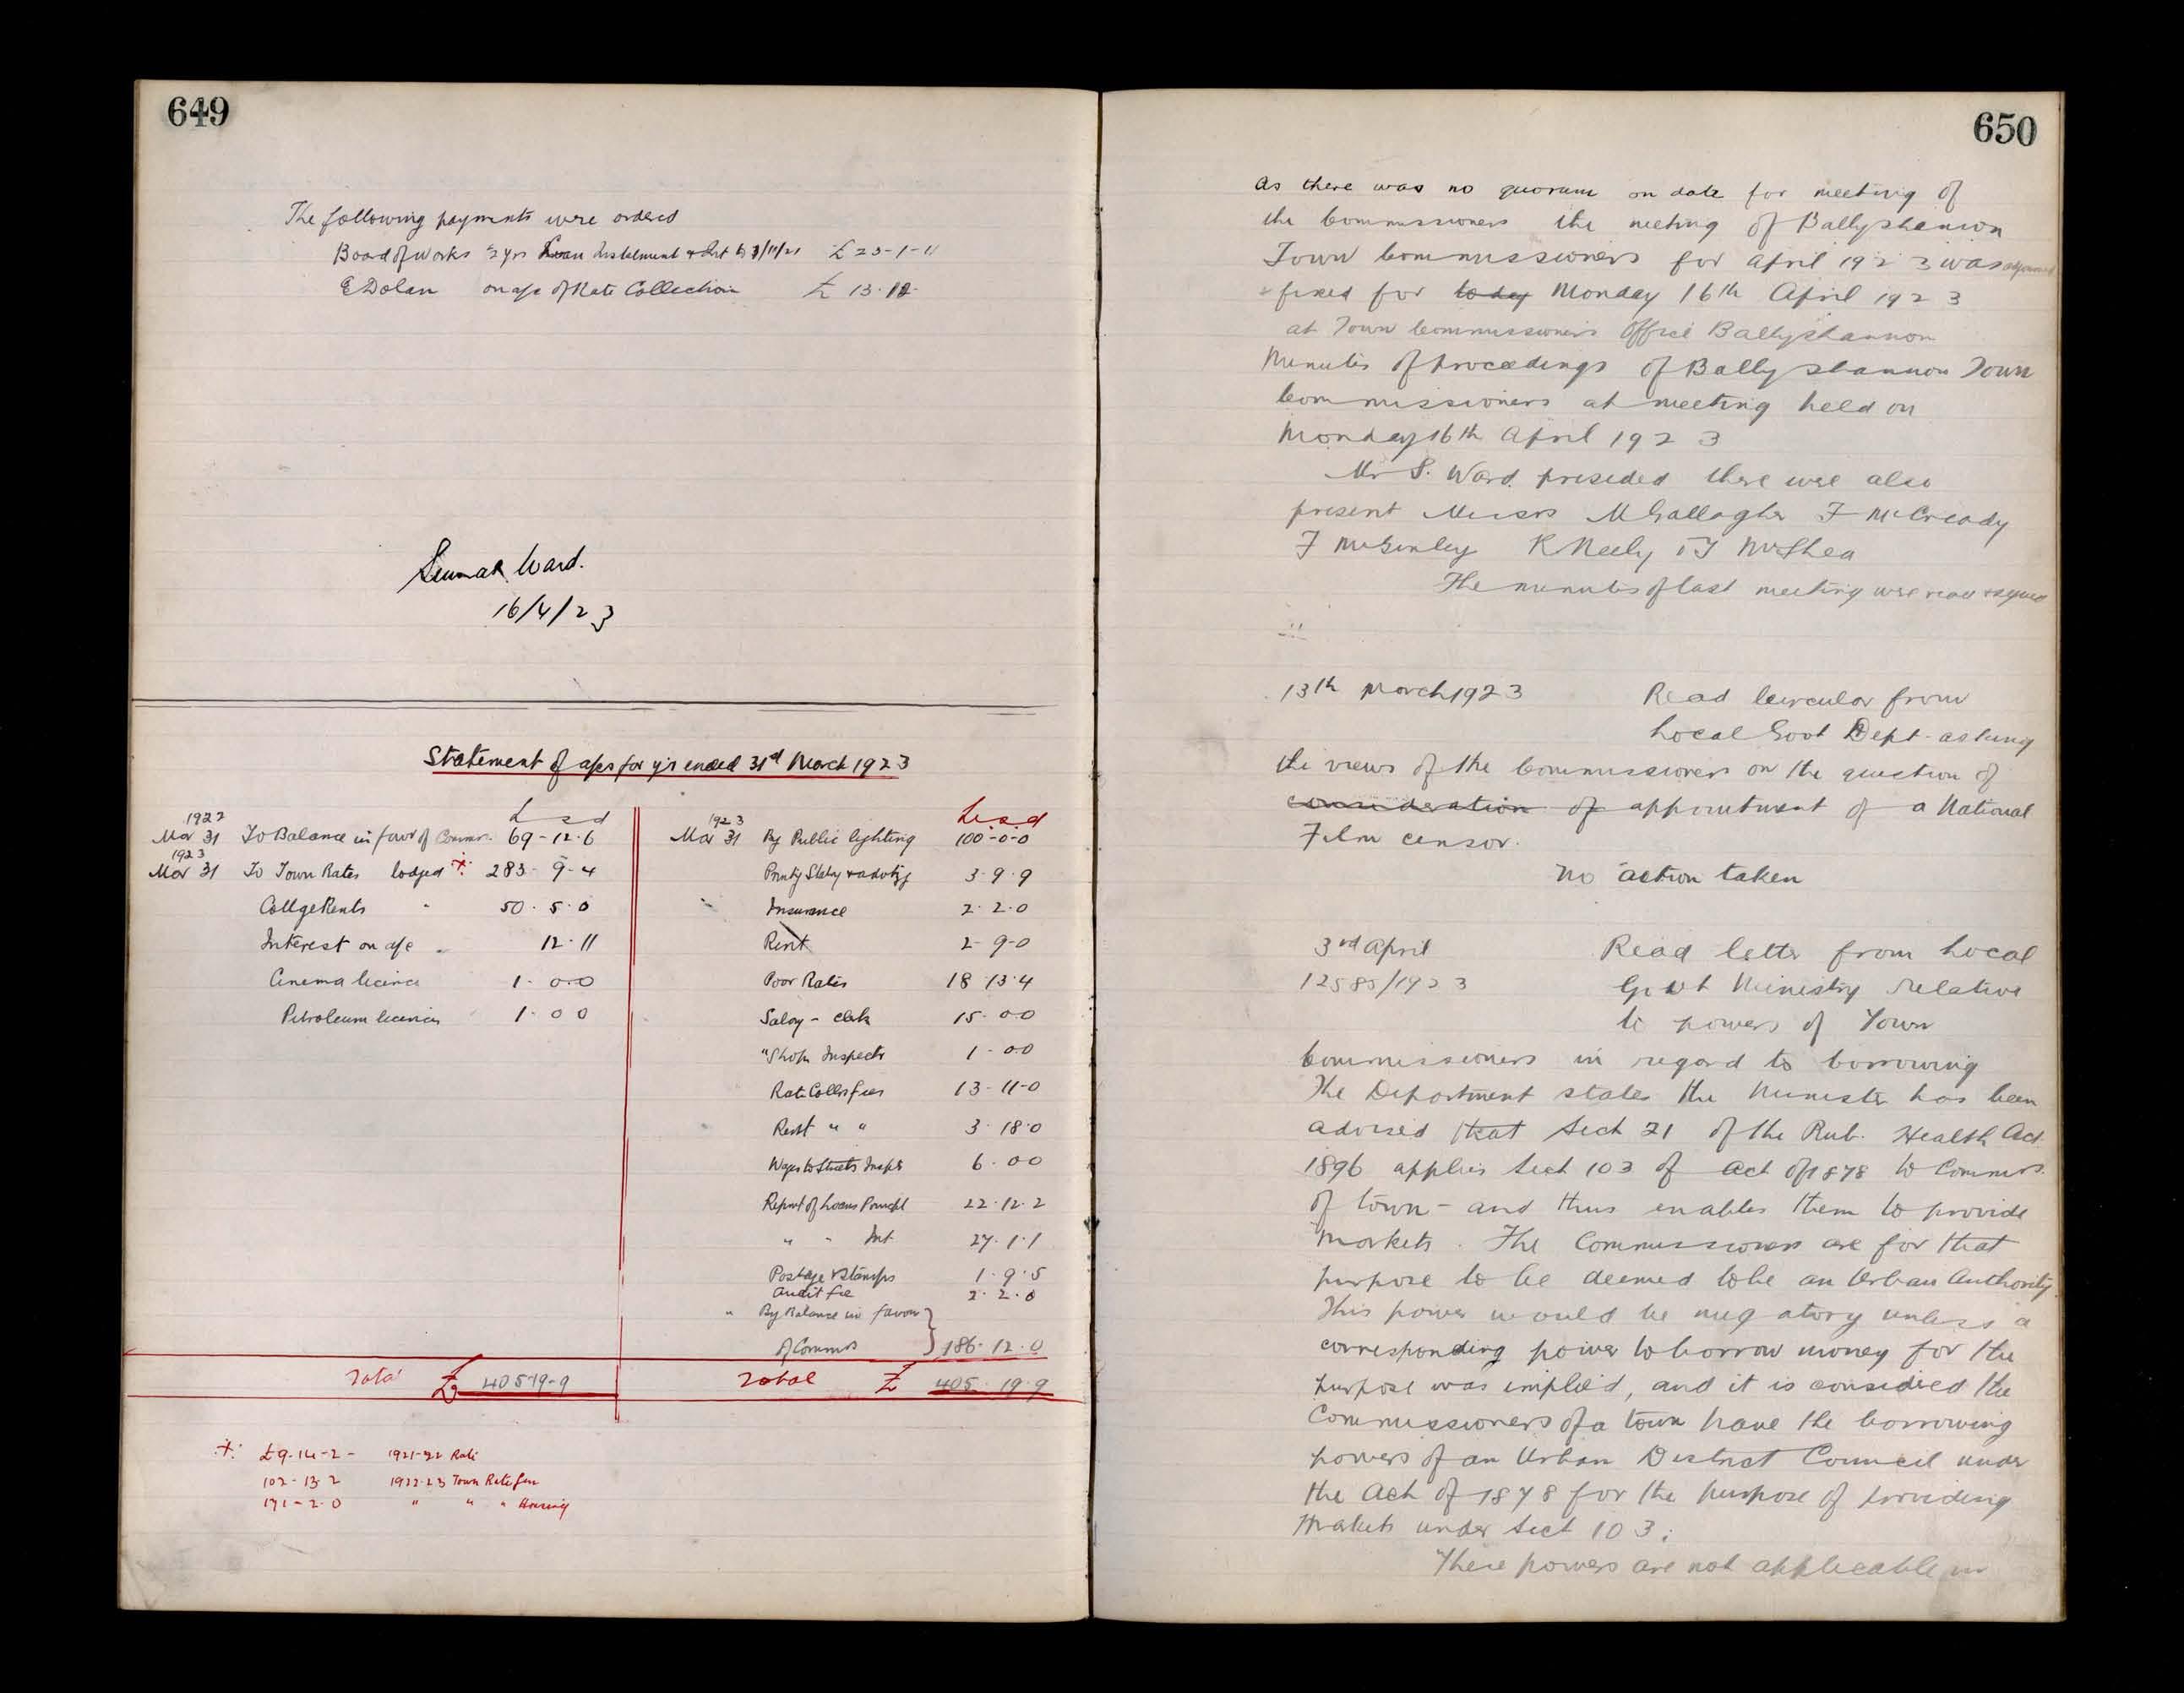 649
The following payments were ordered
Board of Works ½ yrs Loan Instalment & Int to 3/11/21 £ 23-1-11
E Dolan on a/c of Rate Collection £ 13.12.
Ward.
16/4/23
Statement of a/cs for yr ended 31st March 1923
£ s d
1922
Mar 31 To Balance in favr of Commrs. 69-12.6
1923
Mar 31 To Town Rates lodged 283-9-4
Cottge Rents " 50.5.0
Interest on a/c " 12.11
Cinema licence 1.0.0
Petroleum licences 1.0.0
Total £ 405-19-9
£.s.d
1923
Mar 31 By Public lighting 100-0-0
Printg Staty & advtg 3.9.9
Insurance 2.2.0
Rent 2-9-0
Poor Rates 18.13.4
Salary - Clerk 15.0.0
" Shop Inspectr 1-0.0
Rate Collrs fees 13-11-0
Rent " " 3.18.0
Wages to Streets Inspr 6.0.0
Repmt of Loans Principl 22.12.2
" " Int 27.1.1
Postage & Stamps 1.9.5
Audit fee 2.2.0
" By Balance in favour
of Commrs 186.12.0
Total £ 405.19.9
£9.14-2- 1921-22 Rate
102-13.2 1922-23 Town Rate Gen
171-2.0 " " " Housing
650
As there was no quorum on date for meeting of
the Commissioners the meeting of Ballyshannon
Town Commissioners for April 1923 was adjourned
& fixed for to day Monday 16th April 1923
at Town Commissioners Office Ballyshannon
Minutes of proceedings of Ballyshannon Town
Commissioners at meeting held on
Monday 16th April 1923
Mr S. Ward presided there were also
present Messrs M Gallagher F McCready
F McGinley R Neely & J McShea
The minutes of last meeting were read & signed
13th March 1923 Read Circular from
Local Govt Dept. asking
the views of the Commissioners on the question of
consideration of appointment of a National
Film censor.
No action taken
3rd April Read letter from Local
12585/1923 Govt Ministry relative
to powers of Town
Commissioners in regard to borrowing
The Department states the Minister has been
advised that Sect 21 of the Pub. Health Act
1896 applies Sect 103 of Act of 1878 to Commrs.
of town - and thus enables them to provide
Markets. The Commissioners are for that
purpose to be deemed to be an Urban Authority.
This power would be nugatory unless a
corresponding power to borrow money for the
purpose was implied, and it is considered the
Commissioners of a town have the borrowing
powers of an Urban District Council under
the Act of 1878 for the purpose of providing
Markets under Sect 103;
These powers are not applicable in